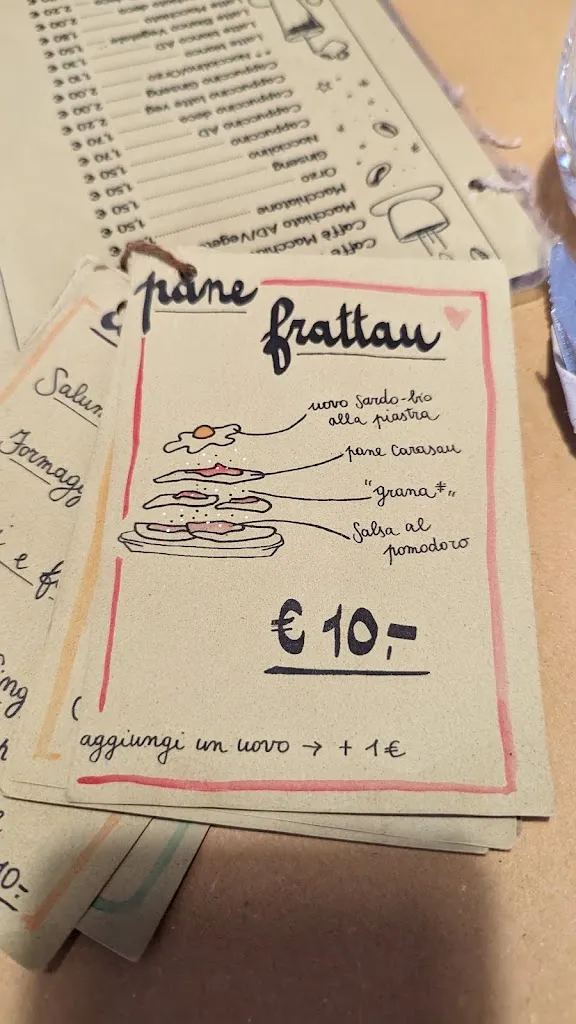 2,20 €
Latte Macchiato deca
2,00 €
Latte Bianco Vegetale
1,50 €
Latte bianco AD
Latte bianco
Nocciolino/Orzo
Cappuccino Ginseng
2,00 €
Cappuccino latte veg
2,20 €
Cappuccino deca
1,70 €
Cappuccino AD
1,70 €
Cappuccino
1,50 €
Nocciolino
1,50 €
Ginseng
1,50 €
Orzo
Macchiatone
Macchiato AD/Veget
Caffè Macchi
Caffè
pane
frattau
uovo Sardo-bio
alla piastra
pane Carasau
"grana*"
Salsa al
pomodoro
€ 10,-
aggiungi un uovo → + 1€
Salum
Formagg
i e f
ing
10,-